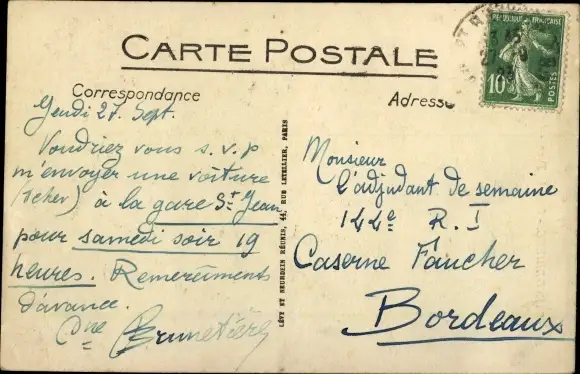 CARTE POSTALE
RÉPUBLIQUE FRANÇAISE
10
POSTES
Correspondance
Adresse
Jeudi 27 Sept.
Voudriez vous s.v.p
m'envoyer une voiture
à la gare St Jean
pour samedi soir 19
heures. Remerciements
d'avance.
Brunetière
LÉVY ET NEURDEIN RÉUNIS, 44, RUE LETELLIER, PARIS
Monsieur
l'adjudant de semaine
144e R. I
Caserne Faucher
Bordeaux